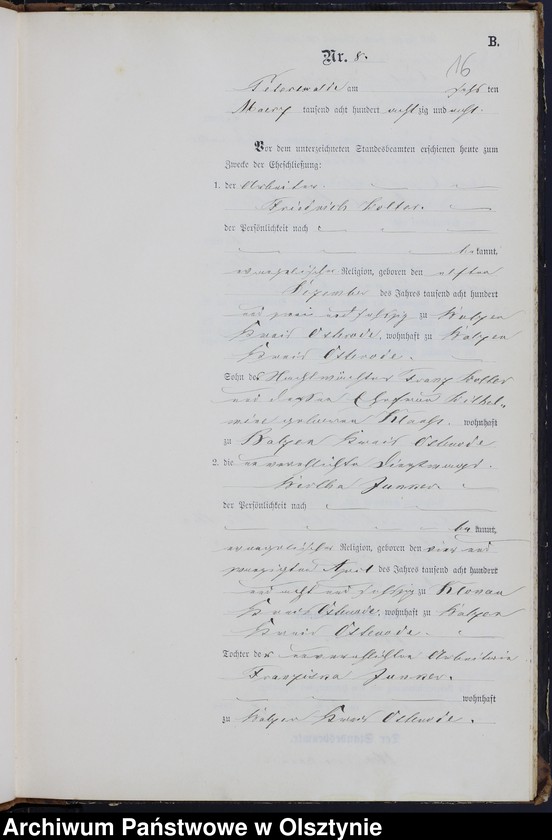 B.
Nr. 8.
16
am sechs ten
Maerz tausend acht hundert achtzig und acht.
Vor dem unterzeichneten Standesbeamten erschienen heute zum
Zwecke der Eheschließung:
1. der Arbeiter
Friedrich Kolter.
der Persönlichkeit nach
bekannt,
evangelischer Religion, geboren den elften
Dezember des Jahres tausend acht hundert
und zwei und sechzig zu
Kreis Osterode, wohnhaft zu
Kreis Osterode.
Sohn des Nachtwächters Franz Kolter
und dessen Ehefrau Wilhel-
mine geborenen wohnhaft
zu Kreis Osterode
2. die unverehelichte Dienstmagd
Bertha Junker.
der Persönlichkeit nach
bekannt,
evangelischer Religion, geboren den vier und
zwanzigsten April des Jahres tausend acht hundert
und acht und sechzig zu
Kreis Osterode, wohnhaft zu
Kreis Osterode.
Tochter der unverehelichten Arbeiterin
Franziska Junker.
wohnhaft
zu Kreis Osterode.
Archiwum Państwowe w Olsztynie